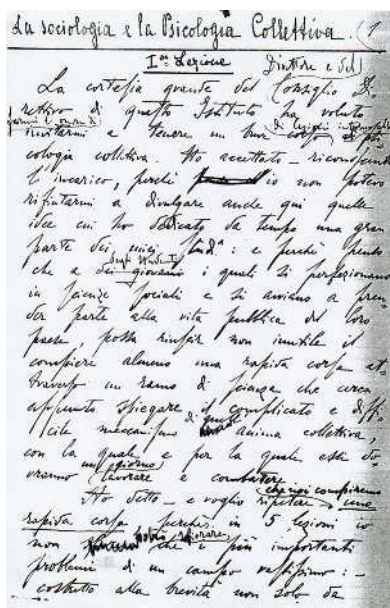 La sociologia e la Psicologia Collettiva. (1
Iª Lezione
Direttore e del
La cortesia grande del Consiglio Di-
rettivo di questo Istituto ha voluto
farmi l'onore di
invitarmi a tenere un breve corso di psi-
cologia collettiva. Ho accettato – riconoscente
l'incarico, perchè io non potevo
rifiutarmi a divulgare anche qui quelle
idee cui ho dedicato da tempo una gran
parte dei miei studi : e perchè penso
degli studenti
che a dei giovani i quali si perfezionano
in scienze sociali e si avviano a pren-
der parte alla vita pubblica del loro
paese, possa riuscir non inutile il
compiere almeno una rapida corsa at-
traverso un ramo di scienza che cerca
appunto spiegare il complicato e diffi-
cile meccanismo di anima collettiva,
con la quale e per la quale essi do-
un giorno
vranno lavorare e combattere.
che noi compiremo
Ho detto – e voglio ripetere – una
rapida corsa perchè in 5 lezioni io
non che i più importanti
problemi di un campo vastissimo : –
costretto alla brevità non solo da